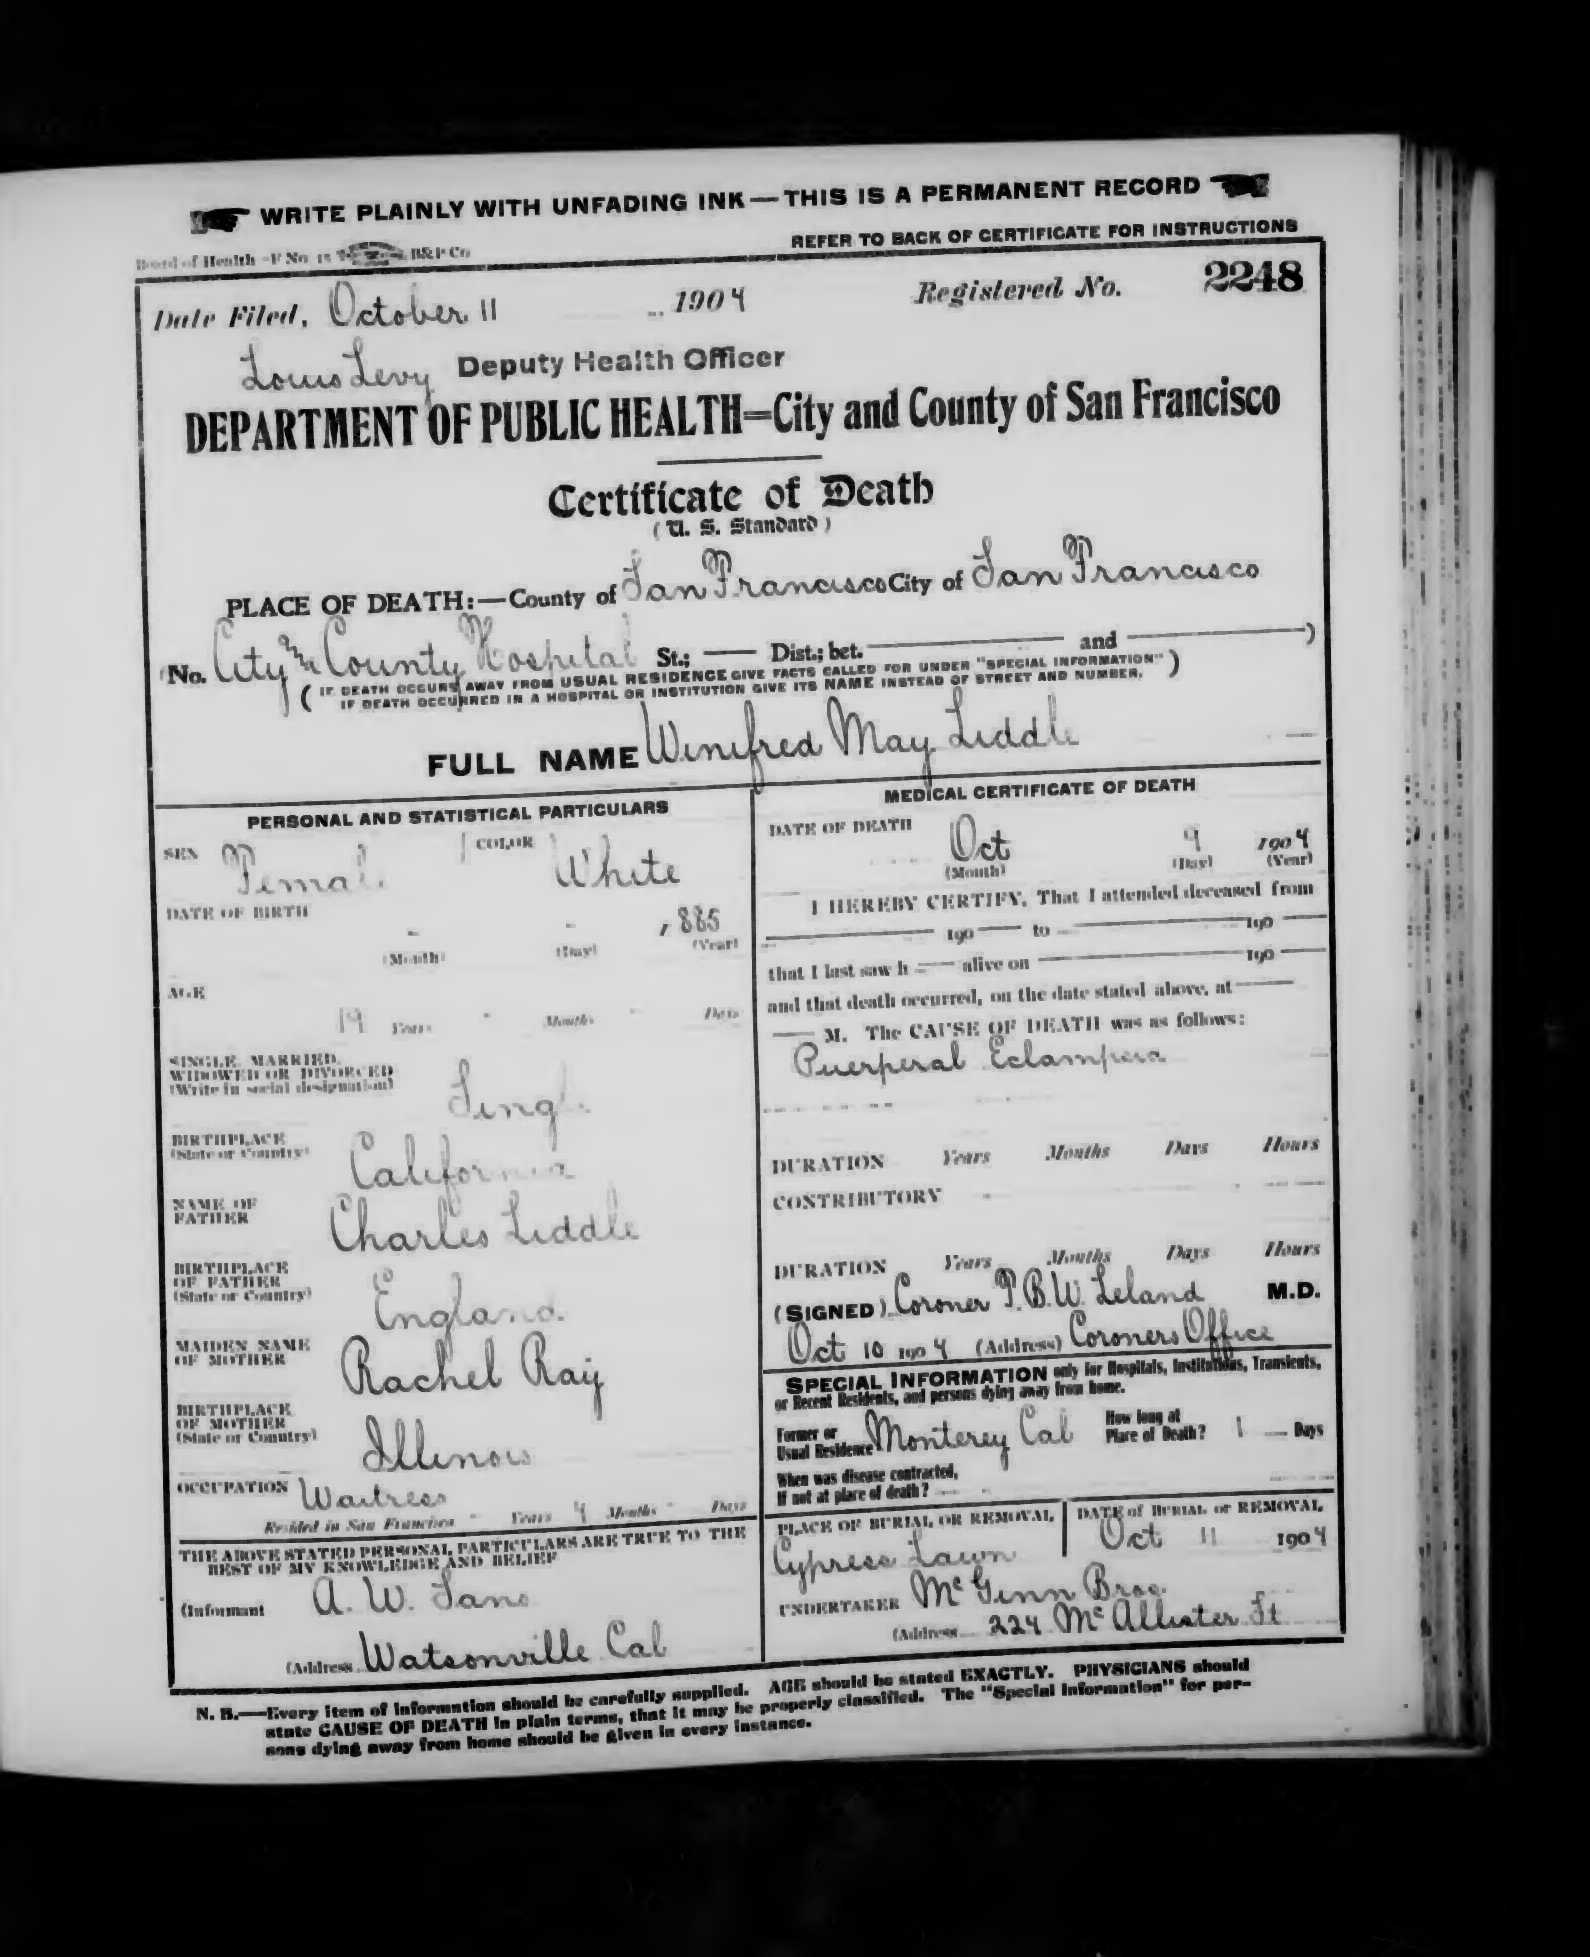 WRITE PLAINLY WITH UNFADING INK — THIS IS A PERMANENT RECORD
Board of Health - F No. 15 B&P Co
REFER TO BACK OF CERTIFICATE FOR INSTRUCTIONS
Date Filed, October 11 1904 Registered No. 2248
Louis Levy Deputy Health Officer
DEPARTMENT OF PUBLIC HEALTH=City and County of San Francisco
Certificate of Death
(U. S. Standard)
PLACE OF DEATH:—County of San Francisco City of San Francisco
(No. City & County Hospital St.; — Dist.; bet. — and — )
( IF DEATH OCCURS AWAY FROM USUAL RESIDENCE GIVE FACTS CALLED FOR UNDER "SPECIAL INFORMATION" )
IF DEATH OCCURRED IN A HOSPITAL OR INSTITUTION GIVE ITS NAME INSTEAD OF STREET AND NUMBER.
FULL NAME Winifred May Liddle
PERSONAL AND STATISTICAL PARTICULARS
SEX Female COLOR White
DATE OF BIRTH
- - , 885
(Month) (Day) (Year)
AGE
19 Years - Months - Days
SINGLE, MARRIED,
WIDOWED OR DIVORCED
(Write in social designation) Single
BIRTHPLACE
(State or Country) California
NAME OF
FATHER Charles Liddle
BIRTHPLACE
OF FATHER
(State or Country) England
MAIDEN NAME
OF MOTHER Rachel Ray
BIRTHPLACE
OF MOTHER
(State or Country) Illinois
OCCUPATION Waitress
Resided in San Francisco - Years 4 Months - Days
THE ABOVE STATED PERSONAL PARTICULARS ARE TRUE TO THE
BEST OF MY KNOWLEDGE AND BELIEF
(Informant A. W. Sans
(Address Watsonville Cal
MEDICAL CERTIFICATE OF DEATH
DATE OF DEATH
Oct 9 1904
(Month) (Day) (Year)
I HEREBY CERTIFY, That I attended deceased from
— 190 — to — 190 —
that I last saw h — alive on — 190 —
and that death occurred, on the date stated above, at —
— M. The CAUSE OF DEATH was as follows:
Puerperal Eclampsia
DURATION Years Months Days Hours
CONTRIBUTORY -
DURATION Years Months Days Hours
(SIGNED) Coroner T. B. W. Leland M.D.
Oct 10 1904 (Address) Coroners Office
SPECIAL INFORMATION only for Hospitals, Institutions, Transients,
or Recent Residents, and persons dying away from home.
Former or
Usual Residence Monterey Cal
How long at
Place of Death? 1 — Days
When was disease contracted,
If not at place of death? -
PLACE OF BURIAL OR REMOVAL
Cypress Lawn
DATE of BURIAL or REMOVAL
Oct 11 1904
UNDERTAKER McGinn Bros.
(Address 224 McAllister St
N. B.—Every item of information should be carefully supplied. AGE should be stated EXACTLY. PHYSICIANS should
state CAUSE OF DEATH in plain terms, that it may be properly classified. The "Special Information" for per-
sons dying away from home should be given in every instance.